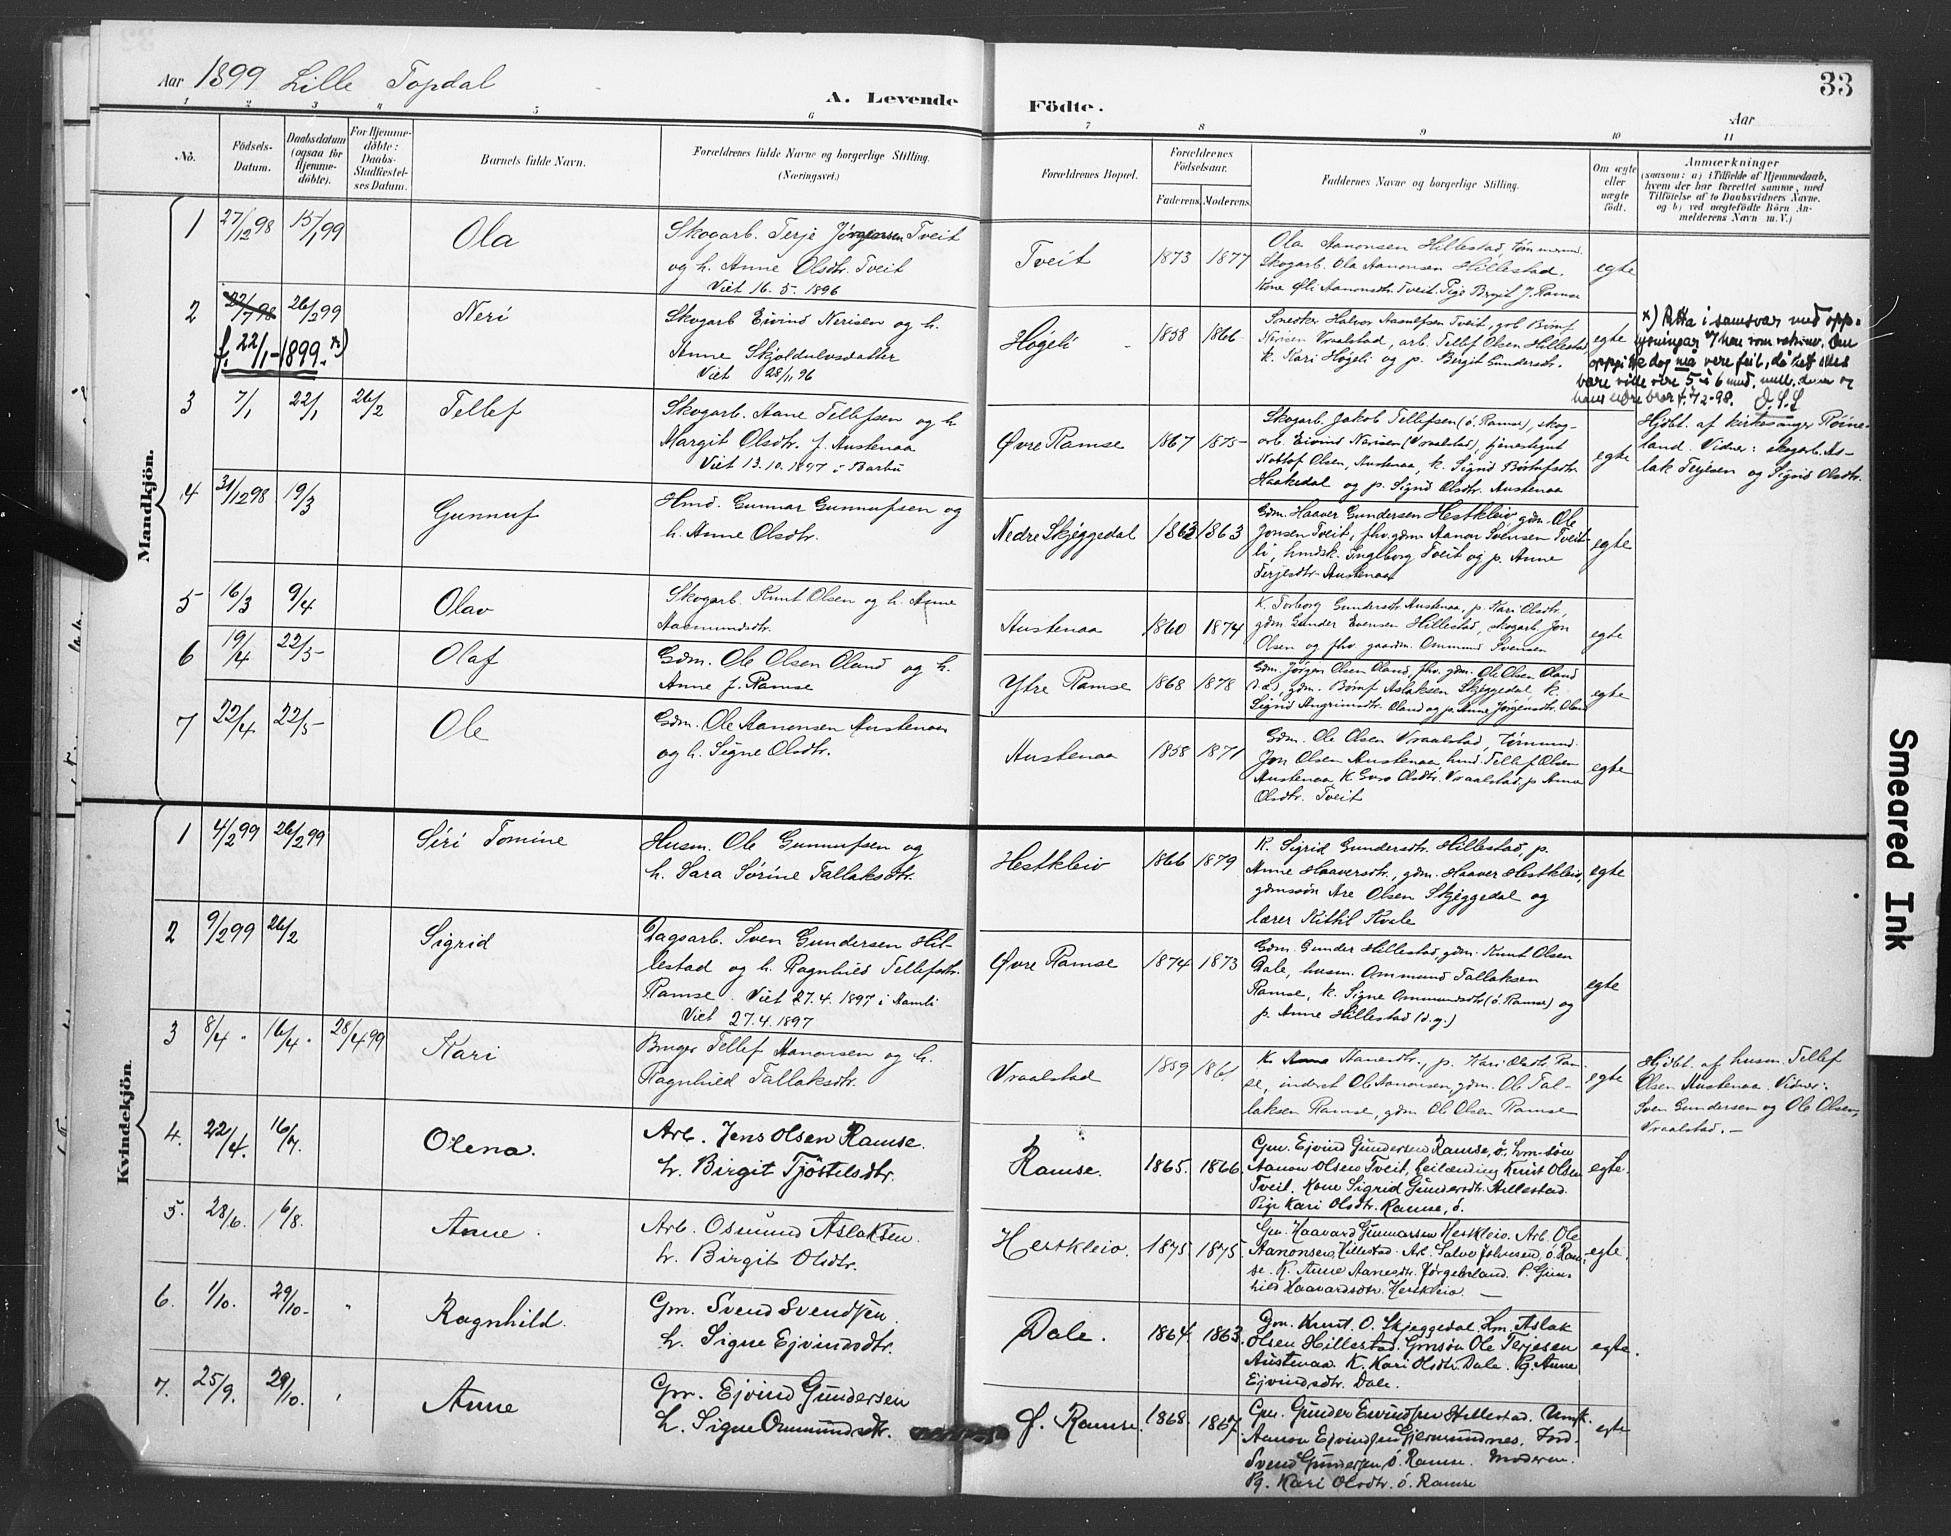 Aar 1899 Lille Topdal
A. Levende Födte.
33
Aar
1 2 3 4 5 6 7 8 9 10 11
No. Födsels-Datum. Daabsdatum (ogsaa for Hjemmedöbte). For Hjemmedöbte: Daabs-Stadfæstelses Datum. Barnets fulde Navn. Forældrenes fulde Navne og borgerlige Stilling. (Næringsvei.) Forældrenes Bopæl. Forældrenes Födselsaar. Faderens. Moderens. Faddernes Navne og borgerlige Stilling. Om ægte eller uægte födt. Anmærkninger
(saasom: a) i Tilfælde af Hjemmedaab,
hvem der har forrettet samme, med
Tilföielse af to Daabsvidners Navne.
og b) ved uægtefödte Börn Anmelderens Navn m. V.)
Mandkjön.
1 27/12 98 15/1 99 Ola
Skogarb. Terje Jørgensen Tveit
og h. Anne Olsdtr. Tveit
Viet 16.5.1896
Tveit 1873 1877
Ola Aanonsen Hillestad, tømmermd.
Skogarb. Ola Aanonsen Hillestad.
Kone Øli Aanonsdtr. Tveit. Pige Birgit J. Ramse
egte
2 22/7 98 26/2 99 Neri
f. 22/1-1899. x)
Skogarb Eivind Nerisen og h.
Anne Skjoldulvsdatter
Viet 28/11 96
Høgeli 1858 1866
Snedker Halvor Aasulfsen Tveit, grb Bernt
Nerisen Vraalstad, arb. Tellef Olsen Hillestad
k. Kari Høgeli og p. Birgit Gundersdtr.
egte
x) Retta i samsvar med opp-
lysningar
oppgitte dag må vere feil, då det elles
bare ville vere 5 à 6 mnd. mill. denne og
hans eldre bror f. 7/2-98. O.S.L
3 7/1 22/1 26/2 Tellef
Skogarb. Aane Tellefsen og h
Margit Olsdtr. f. Austenaa
Viet 13.10.1897 i Barbu
Øvre Ramse 1867 1875
Skogarb. Jakob Tellefsen (ö. Ramse), skog-
arb. Eivind Nerisen (Vraalstad), tjenestegut
Nottof Olsen, Austenaa, k. Sigrid Börtufsdtr.
Haakedal og p. Sigrid Olsdtr. Austenaa
egte
Hjdbt. af kirkesanger Röine-
land. Vidner: skogarb. As-
lak Terjesen og Sigrid Olsdtr.
4 31/12 98 19/3 Gunnuf
Hmd. Gunnar Gunnufsen og
h. Anne Olsdtr.
Nedre Skjeggedal 1862 1863
Gdm. Haaver Gundersen Hestkleiv, gdm. Ole
Jonsen Tveit, fhv. gdm Aanon Svensen Tveit-
li, hmdsk. Ingeborg Tveit og p. Anne
Terjesdtr. Austenaa
egte
5 16/3 9/4 Olav
Skogarb. Knut Olsen og h. Anne
Aasmundsdtr.
Austenaa 1860 1874
K. Torborg Gundersdtr. Austenaa, p. Kari Olsdtr,
gdm Gunder Evensen Hillestad, skogarb. Jon
Olsen og fhv. gaardm. Ommund Svensen
egte
6 19/4 22/5 Olaf
Gdm. Ole Olsen Oland og h.
Anne f. Ramse
Ytre Ramse 1868 1878
Gdm. Jørgen Olsen Oland, fhv. gdm. Ole Olsen Oland
s.s), gdm. Börnf Aslaksen Skjeggedal, k.
Sigrid Angrimsdtr. Oland og p. Anne Jörgensdtr. Oland
egte
7 22/4 22/5 Ole
Gdm. Ole Aanonsen Austenaa
og h. Signe Olsdtr.
Austenaa 1858 1871
Gdm. Ole Olsen Vraalstad, tömmermd.
Jon Olsen Austenaa, hmd. Tellef Olsen
Austenaa K. Guro Olsdtr. Vraalstad, p Anne
Olsdtr. Tveit
egte
Kvindekjön.
1 4/2 99 26/2 99 Siri Tomine
Husm. Ole Gunnufsen og
h. Sara Sörine Tallaksdtr.
Hestkleiv 1866 1879
K. Sigrid Gundersdtr. Hillestad, p.
Anne Haaversdtr., gdm. Haaver Hestkleiv,
gdmssön Are Olsen Skjeggedal og
lærer Kittil Kvale
egte
2 9/2 99 26/2 Sigrid
Dagsarb. Sven Gundersen Hil-
lestad og h. Ragnhild Tellefsdtr.
Ramse. Viet 27.4.1897 i Aamli
Viet 27.4.1897
Øvre Ramse 1874 1873
Gdm. Gunder Hillestad, gdm. Knut Olsen
Dale, husm. Ommund Tallaksen
Ramse, k. Signe Ommundsdtr (ö. Ramse) og
p. Anne Hillestad (d.y.)
egte
3 8/4 16/4 28/4 99 Kari
Bruger Tellef Aanonsen og h.
Ragnhild Tallaksdtr.
Vraalstad 1859 1861
K. Anne Aanesdtr., p. Kari Olsdtr. Ram-
se, inderst Ole Aanonsen, gdm. Ole Tal-
laksen Ramse, gdm Ole Olsen Ramse
egte
Hjdbt. af husm. Tellef
Olsen Austenaa. Vidner:
Sven Gundersen og Ole Olsen,
Vraalstad. —
4. 22/4. 16/7. Olena.
Arb. Jens Olsen Ramse.
h. Birgit Tjöstelsdtr.
Ramse. 1865. 1866.
Gm. Ejvind Gundersen Ramse, ö. Gm-sön
Aanon Olsen Tveit, Leilænding Knut Olsen
Tveit. Kone Sigrid Gundersdtr. Hillestad.
Pige Kari Olsdtr. Ramse, ö.
egte.
5. 28/6. 6/8. Anne.
Arb. Osmund Aslaksen.
h. Birgit Olsdtr.
Hestkleiv. 1875. 1875.
Gm. Haavard Gunnarsen Hestkleiv. Arb. Ole
Aanonsen, Hillestad. Arb. Salve Johnsen, ö. Ram-
se. K. Anne Aanesdtr. P. Gun-
hild Haavardsdtr. Hestkleiv. —
egte.
6. 1/10. 29/10. " Ragnhild.
Gm. Svend Svendsen.
h. Signe Ejvindsdtr.
Dale. 1864. 1863.
Gm. Knut. O. Skjeggedal. Hm. Aslak
Olsen Hillestad. Gmsön Ole Terjesen
Austenaa. K. Kari Olsdtr. Dale. Pg. Anne
Ejvindsdtr. Dale.
egte.
7. 25/9. 29/10. " Anne
Gm. Ejvind Gundersen
h. Signe Ommundsdtr.
Ö. Ramse. 1868. 1867.
Gm. Gunder Eivindsen Hillestad. Umk.
Aanon Ejvindsen Gjermundnes. Ind.
Svend Gundersen, ö. Ramse. Moderen.
Pg. Kari Olsdtr. ö. Ramse
egte
Smeared Ink